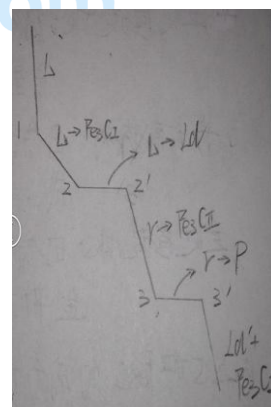 L
1
L→Fe3CⅠ
L→Ld
2
2'
γ→Fe3CⅡ
γ→P
3
3'
Ld'+
Fe3C